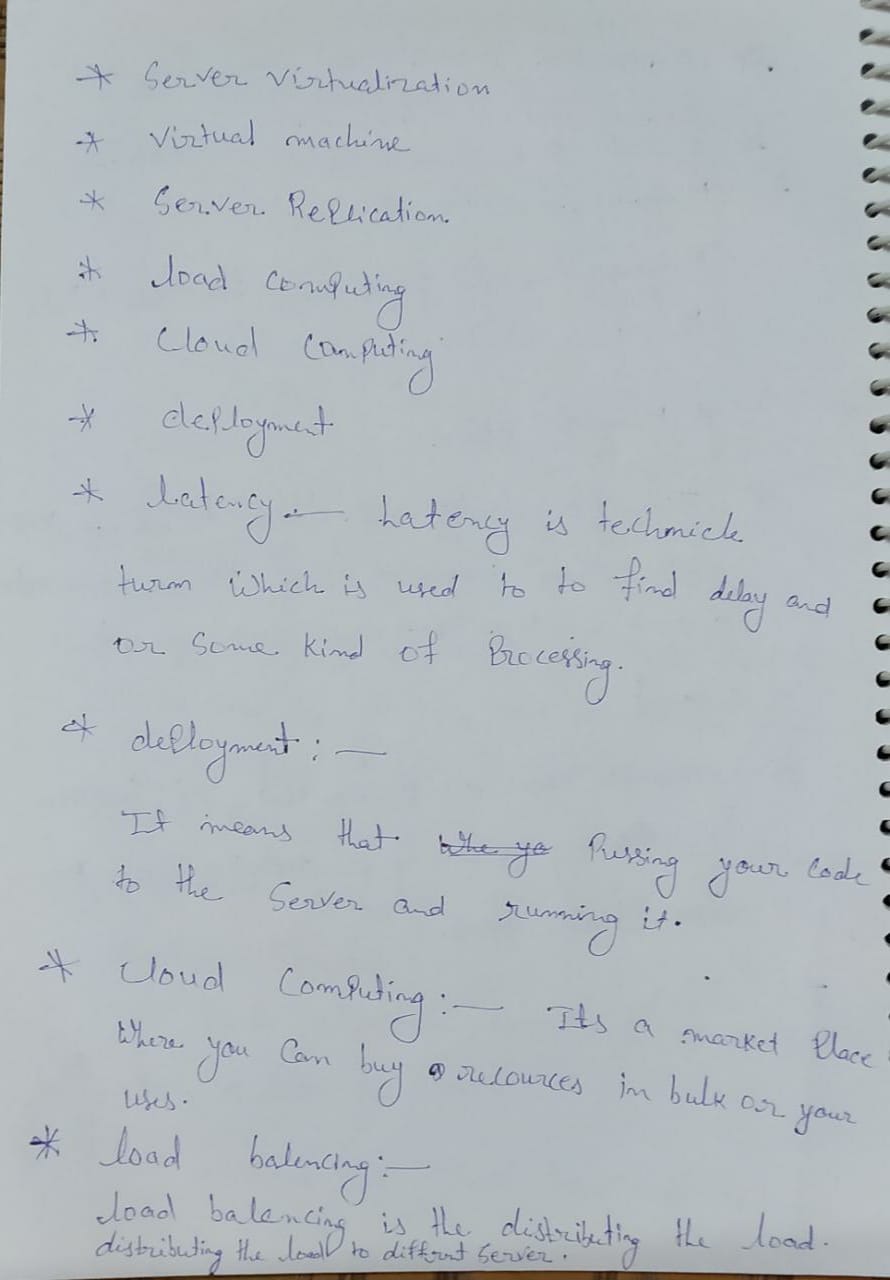 * Server Virtualization
* Virtual machine
* Server Replication.
* load Computing
* Cloud Computing
* deployment
* Latency :— Latency is technick
turm which is used to to find delay and
or Some kind of Processing.
* deployment : —
It means that Whe yo Pussing your Code
to the Server and running it.
* Cloud Computing :— Its a market Place
Where you Can buy resources in bulk or your
uses.
* load balencing :—
load balencing is the distributing the load.
distributing the load to diffrnt Server.